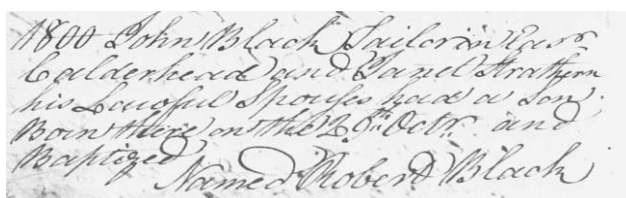 1800 John Black Tailor in East
Calderhead and Janet Strathern
his Lawful Spouses had a Son
Born there on the 29th Octr. and
Baptized
Named Robert Black